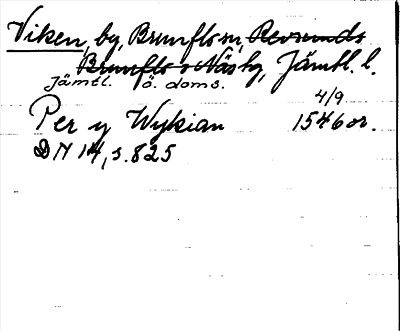 Viken, by, Brunflo sn, Revsunds
Brunflo o Näs hg, Jämtl. l.
Jämtl. ö. doms.
4/9
Per y Wykian 1546 or.
DN 14, s. 825